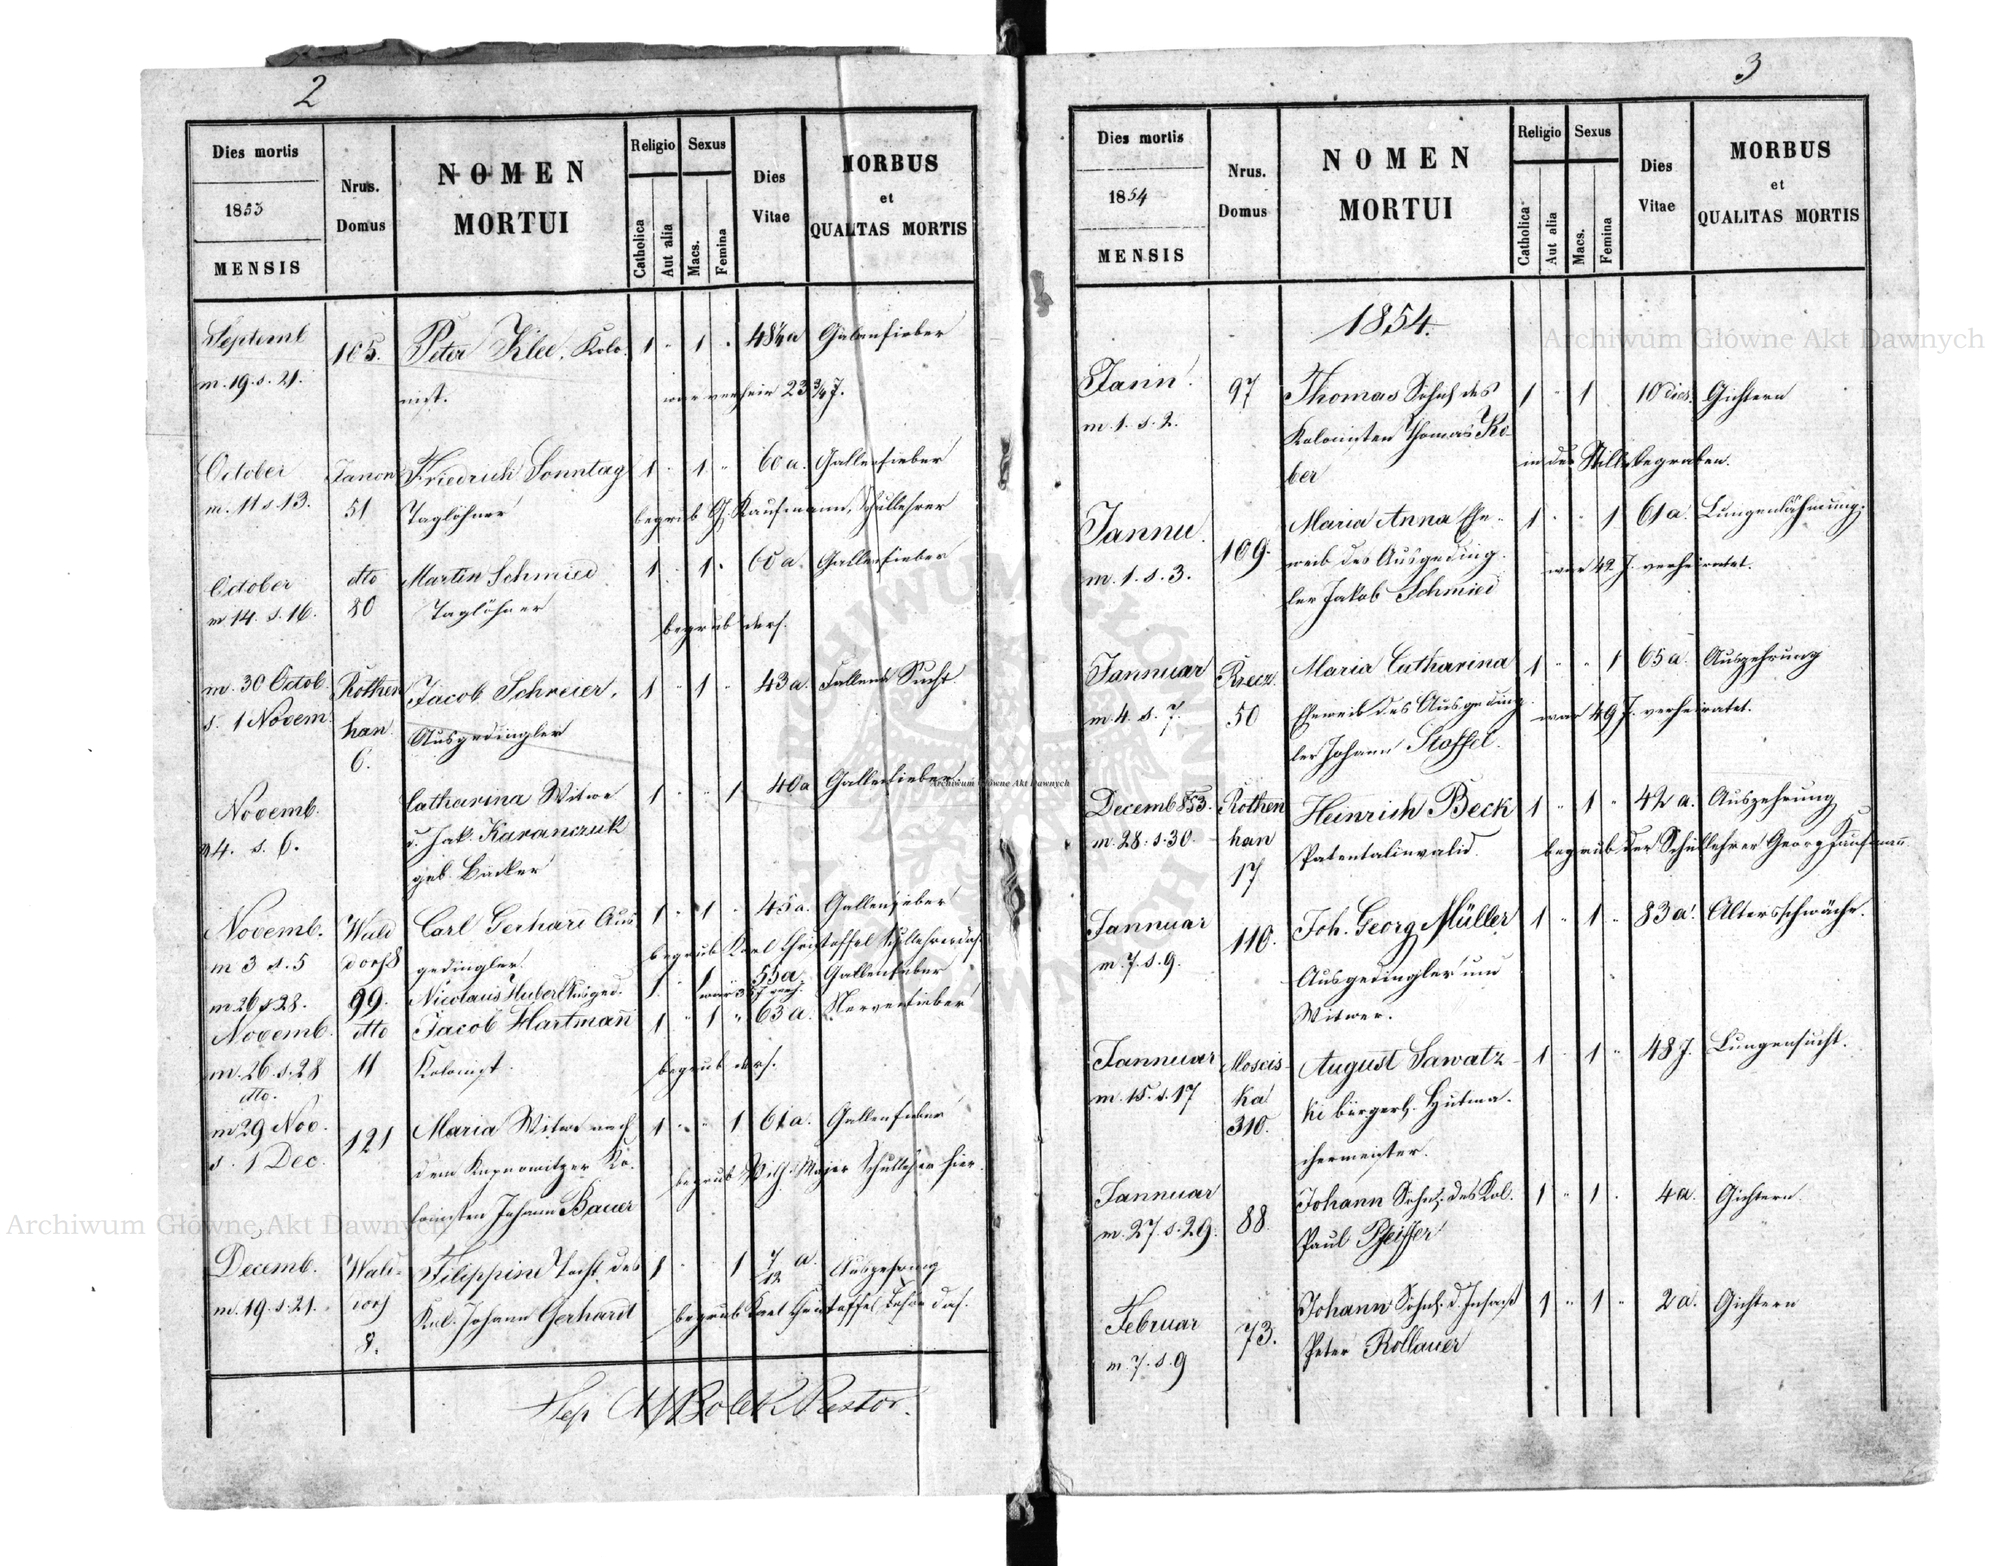 2
Dies mortis
1853
MENSIS
Nrus.
Domus
NOMEN
MORTUI
Religio
Catholica
Aut alia
Sexus
Macs.
Femina
Dies
Vitae
MORBUS
et
QUALITAS MORTIS
Septemb
m. 19. s. 21.
105.
Peter Klee, Kolo-
nist.
1 " 1 "
Gallenfieber
October
m. 11 s 13.
Janon
51
Friedrich Sonntag
Taglöhner
1 " 1 "
60 a.
Gallenfieber
begrub G. Kaufmann, Schullehrer
October
m 14. s. 16.
dto
80
Martin Schmied
Taglöhner
1 " 1 "
60 a.
Gallenfieber
begrub ders.
m. 30 Octob.
s. 1 Novem.
Rothen
han
6.
Jacob Schreier,
Ausgedingler
1 " 1 "
43 a.
Fallende Sucht
Novemb.
4. s. 6.
Catharina Witwe
d. Jak. Karanczuk
geb. Bäcker
1 " " 1
40 a
Gallenfieber.
Novemb.
m 3 s. 5
Wald
dorf 8
Carl Gerhard Aus
gedingler.
1 " 1 "
45 a.
Gallenfieber
begrub Karl Christoffel Schullehrer das.
m 26 s 28.
99.
Nicolaus Huber Ausged.
1 " 1 "
55 a.
Gallenfieber
Novemb.
m. 26. s. 28
dto
11
Jacob Hartmann
Kolonist.
1 " 1 "
63 a.
Nervenfieber
begrub ders.
dto.
m 29 Nov.
s. 1 Dec.
121
Maria Witwe nach
dem Kolonisten Johann Bauer
1 " " 1
61 a.
Gallenfieber
begrub Wilh. Majer Schullehrer hier.
Decemb.
m. 19. s. 21.
Wald-
dorf
8.
Filippine Tocht. des
Kol. Johann Gerhard
1 " " 1
7/12 a.
Auszehrung
begrub Karl Christoffel Lehrer das.
Pastor.
3
Dies mortis
1854
MENSIS
Nrus.
Domus
NOMEN
MORTUI
Religio
Catholica
Aut alia
Sexus
Macs.
Femina
Dies
Vitae
MORBUS
et
QUALITAS MORTIS
1854.
Jann.
m. 1. s. 2.
97
Thomas Sohn des
Kolonisten Thomas Ko-
ber
1 " 1
10 dies.
Gichtern
in der Stille begraben.
Jannu.
m. 1. s. 3.
109.
Maria Anna Ehe-
weib des Ausgeding-
ler Jakob Schmied
1 " " 1
61 a.
Lungenlähmung.
war 42 J. verheiratet.
Jannuar
m 4. s. 7.
50
Maria Catharina
Eheweib des Ausgeding-
ler Johann Stoffel.
1 " " 1
65 a.
Auszehrung
war 49 J. verheiratet.
Decemb 853.
m. 28. s. 30.
Rothen
han
17
Heinrich Beck
Patentalinvalid.
1 " 1 "
42 a.
Auszehrung
begrub der Schullehrer Georg Kaufmann
Jannuar
m. 7. s. 9.
110.
Joh. Georg Müller
Ausgedingler und
Witwer.
1 " 1 "
83 a.
Altersschwäche.
Jannuar
m. 15. s. 17
Moscis-
ka
310.
August Sawatz-
ki bürgerl. Hutma-
chermeister.
1 " 1 "
48 J.
Lungensucht.
Jannuar
m. 27. s. 29.
88.
Johann Sohn des Kol.
Paul Pfeiffer
1 " 1 "
4 a.
Gichtern
Februar
m. 7. s. 9
73.
Johann Sohn d. Insaß
Peter Kollauer
1 " 1 "
2 a.
Gichtern
Archiwum Główne Akt Dawnych
Archiwum Główne Akt Dawnych
Archiwum Główne Akt Dawnych